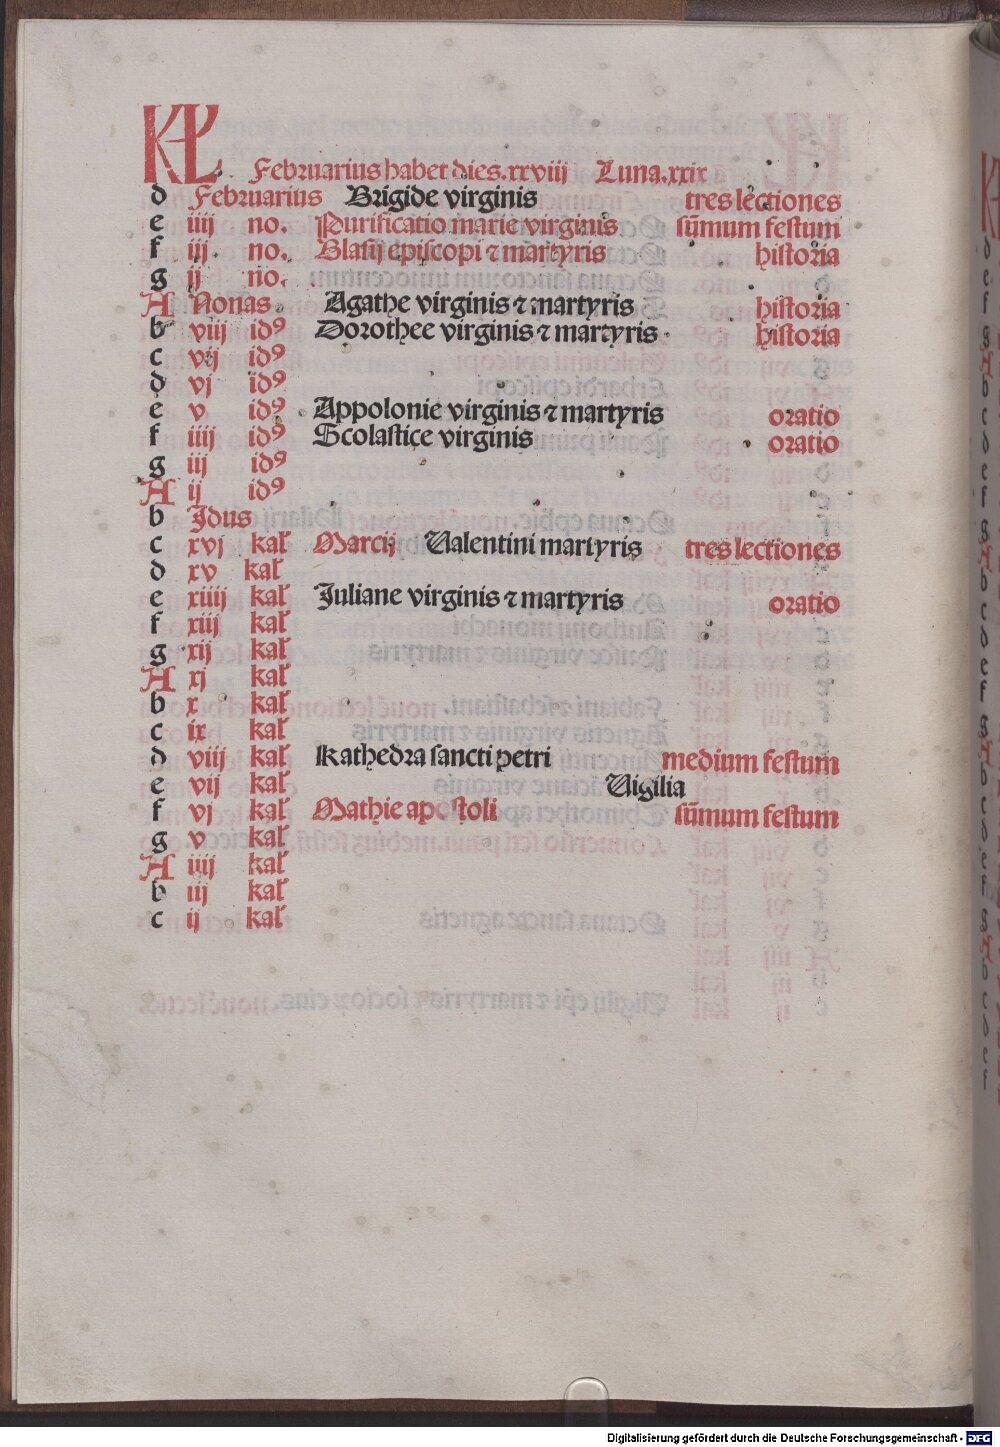 KL Februarius habet dies.xxviij Luna.xxix
d Februarius Brigide virginis tres lectiones
e iiij no. Purificatio marie virginis sūmum festum
f iij no. Blasij episcopi ⁊ martyris historia
g ij no.
A Nonas Agathe virginis ⁊ martyris historia
b viij idꝰ Dorothee virginis ⁊ martyris historia
c vij idꝰ
d vj idꝰ
e v idꝰ Appolonie virginis ⁊ martyris oratio
f iiij idꝰ Scolastice virginis oratio
g iij idꝰ
A ij idꝰ
b Idus
c xvj kal̛ Marcij Valentini martyris tres lectiones
d xv kal̛
e xiiij kal̛ Juliane virginis ⁊ martyris oratio
f xiij kal̛
g xij kal̛
A xj kal̛
b x kal̛
c ix kal̛
d viij kal̛ Kathedra sancti petri medium festum
e vij kal̛ Vigilia
f vj kal̛ Mathie apostoli sūmum festum
g v kal̛
A iiij kal̛
b iij kal̛
c ij kal̛
Digitalisierung gefördert durch die Deutsche Forschungsgemeinschaft - DFG